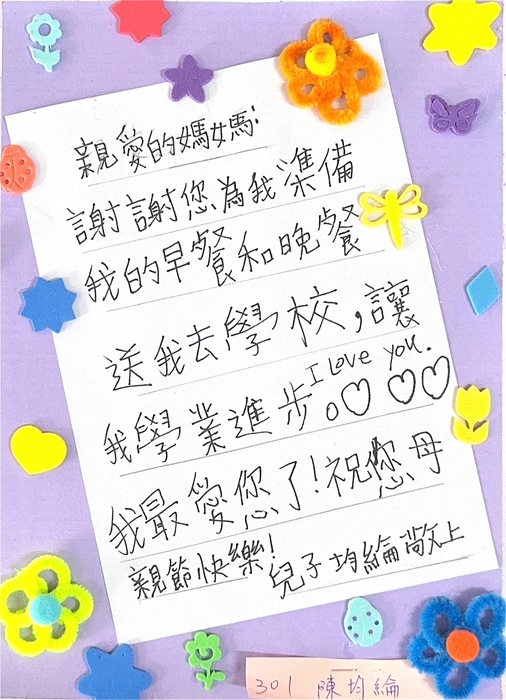 親愛的媽媽:
謝謝您為我準備
我的早餐和晚餐
送我去學校,讓
我學業進步。I love you.
我最愛您了!祝您母
親節快樂!兒子均綸敬上
301 陳均綸